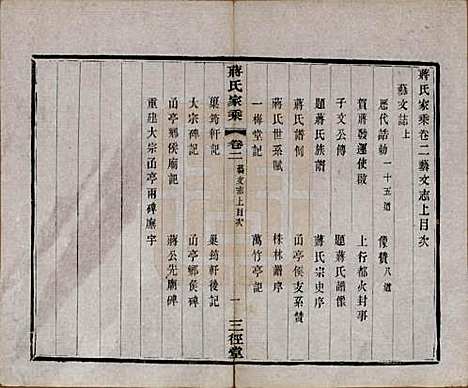 蔣氏家乘卷二藝文志上目次
藝文誌上
歷代誥勅一十五道　像贊八道
賀蔣發運使啟　上行都火封事
子文公傳　題蔣氏譜像
題蔣氏族譜　蔣氏宗史序
蔣氏譜例　函亭侯支系贊
蔣氏世系賦　株林譜序
一梅堂記　萬竹亭記
蔣氏家乘　卷二　藝文志上目次　一　三徑堂
巢筠軒記　巢筠軒後記
大宗碑記　函亭鄉侯碑
函亭鄉侯廟記　蔣公先廟碑
重建大宗函亭兩碑廡字